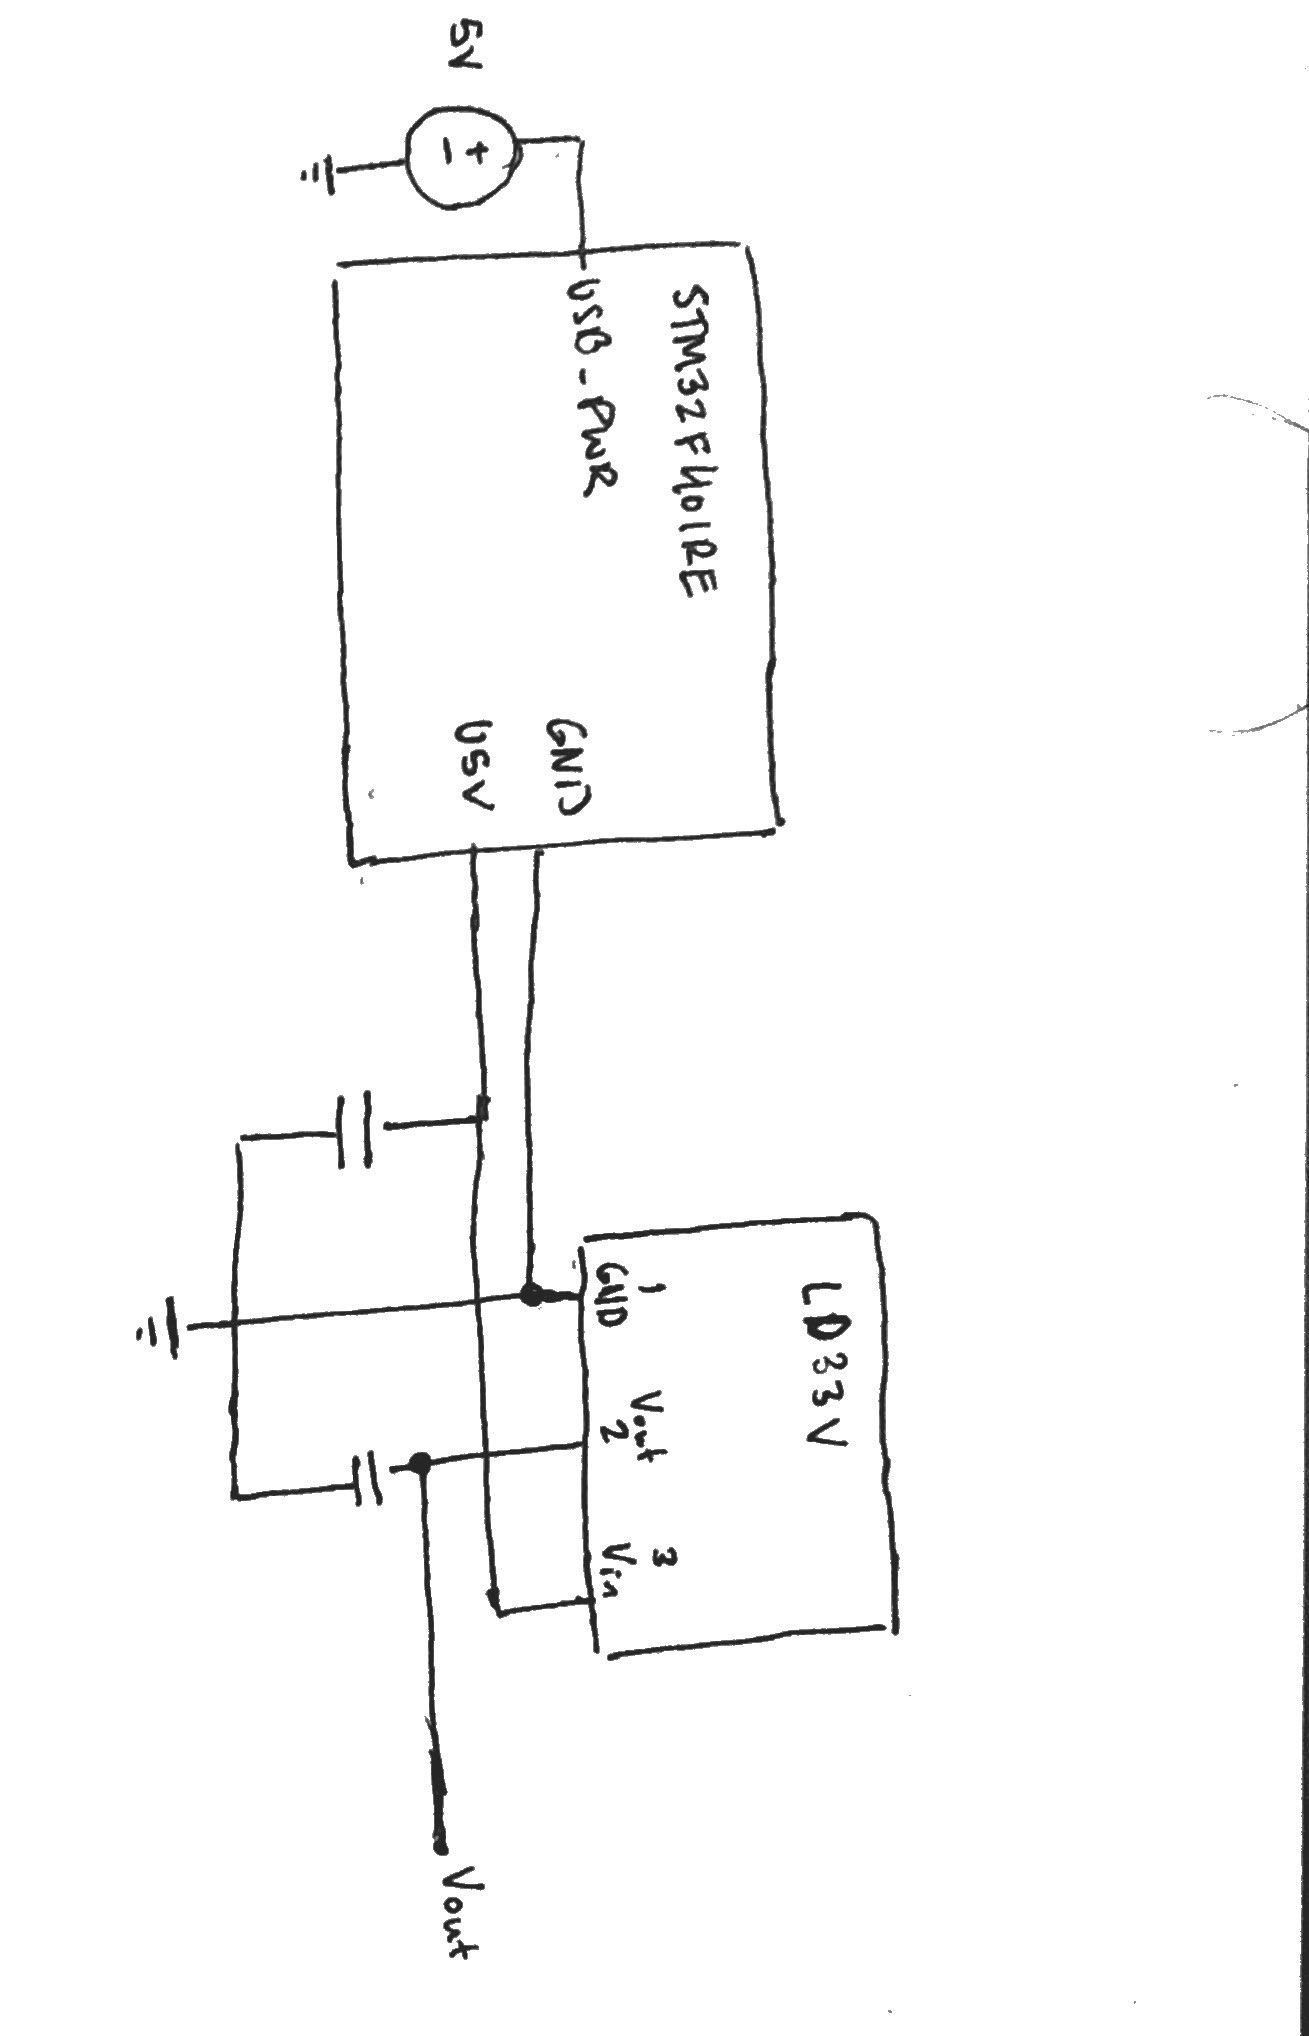 5V
+
-
STM32F401RE
USB-PWR
GND
U5V
LD33V
1
GND
Vout
2
3
Vin
Vout